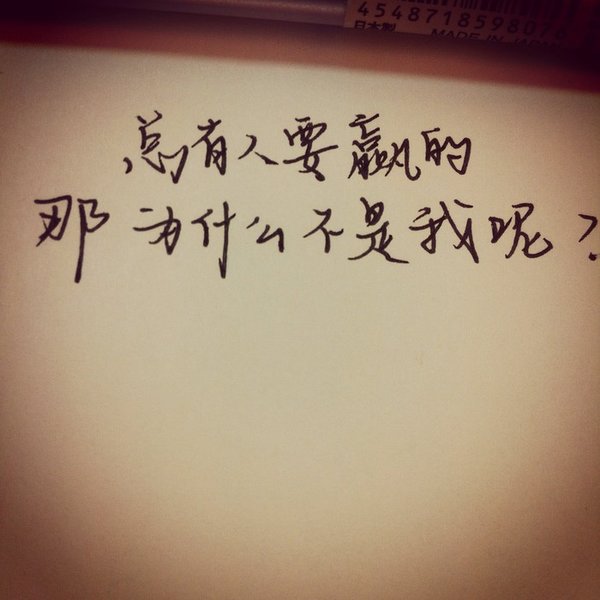 4548718598076
日本製 MADE IN JAPAN
总有人要赢的
那为什么不是我呢?